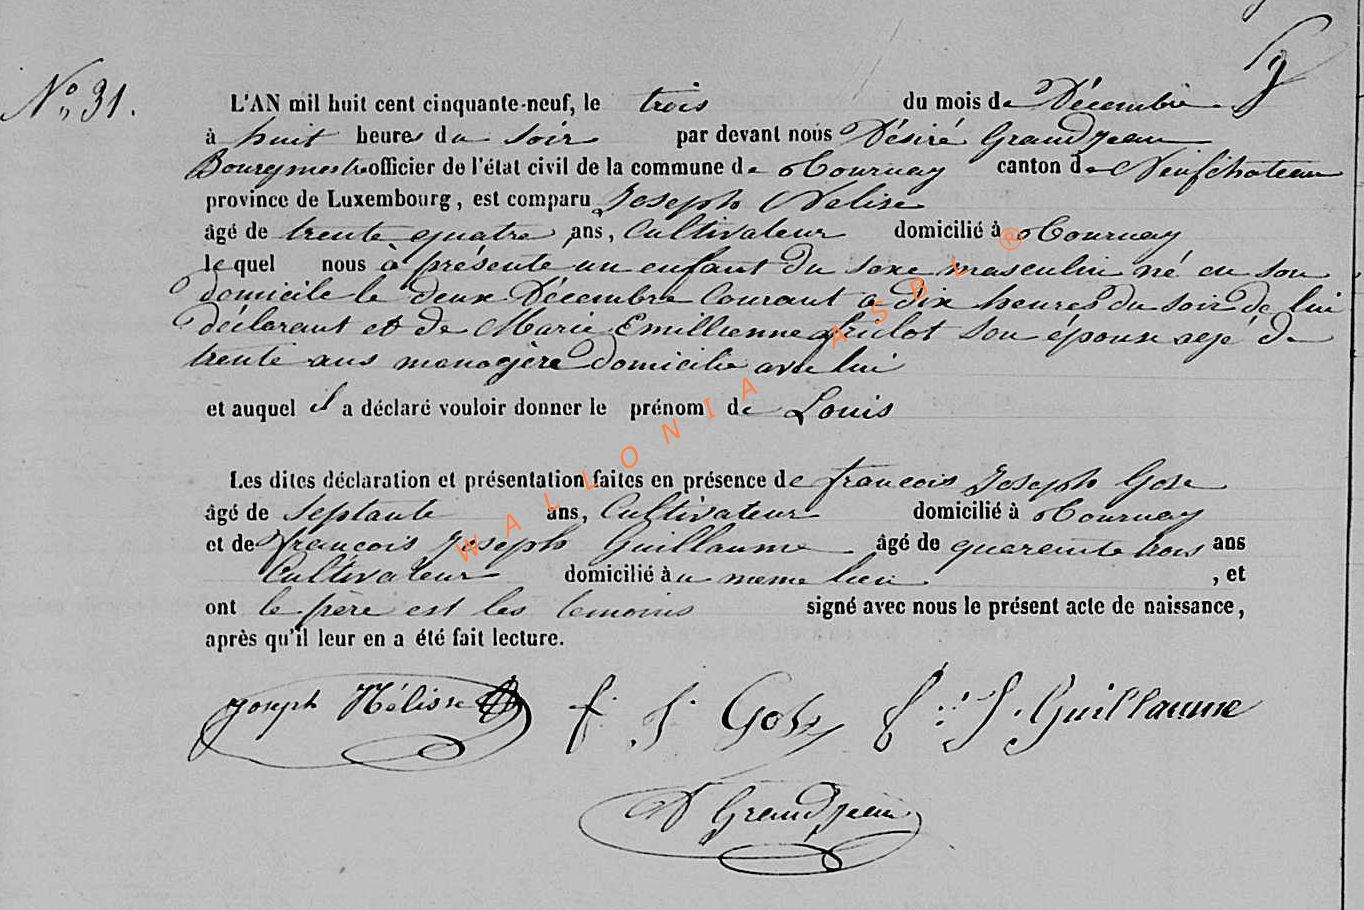 N° 31.
L'AN mil huit cent cinquante-neuf, le trois du mois de Décembre
à huit heures du soir par devant nous Désiré Grandjean
Bourgmestre officier de l'état civil de la commune de Tournay canton de Neufchateau
province de Luxembourg, est comparu Joseph Nelisse
âgé de trente quatre ans, Cultivateur domicilié à Tournay
le quel nous à présente un enfant du sexe masculin né en son
domicile le deux Décembre Courant a dix heures du soir de lui
déclarant et de Marie Emillienne son épouse agé de
trente ans menagère domicilie avec lui
et auquel il a déclaré vouloir donner le prénom de Louis
Les dites déclaration et présentation faites en présence de francois Joseph Gose
âgé de septante ans, Cultivateur domicilié à Tournay
et de françois Joseph Guillaume âgé de quarente trois ans
Cultivateur domicilié à u meme lieu , et
ont le père est les temoins signé avec nous le présent acte de naissance,
après qu'il leur en a été fait lecture.
Joseph Nélisse f. J. Gose f. J. Guillaume
D Grandjean
WALLONIA ASBL ®